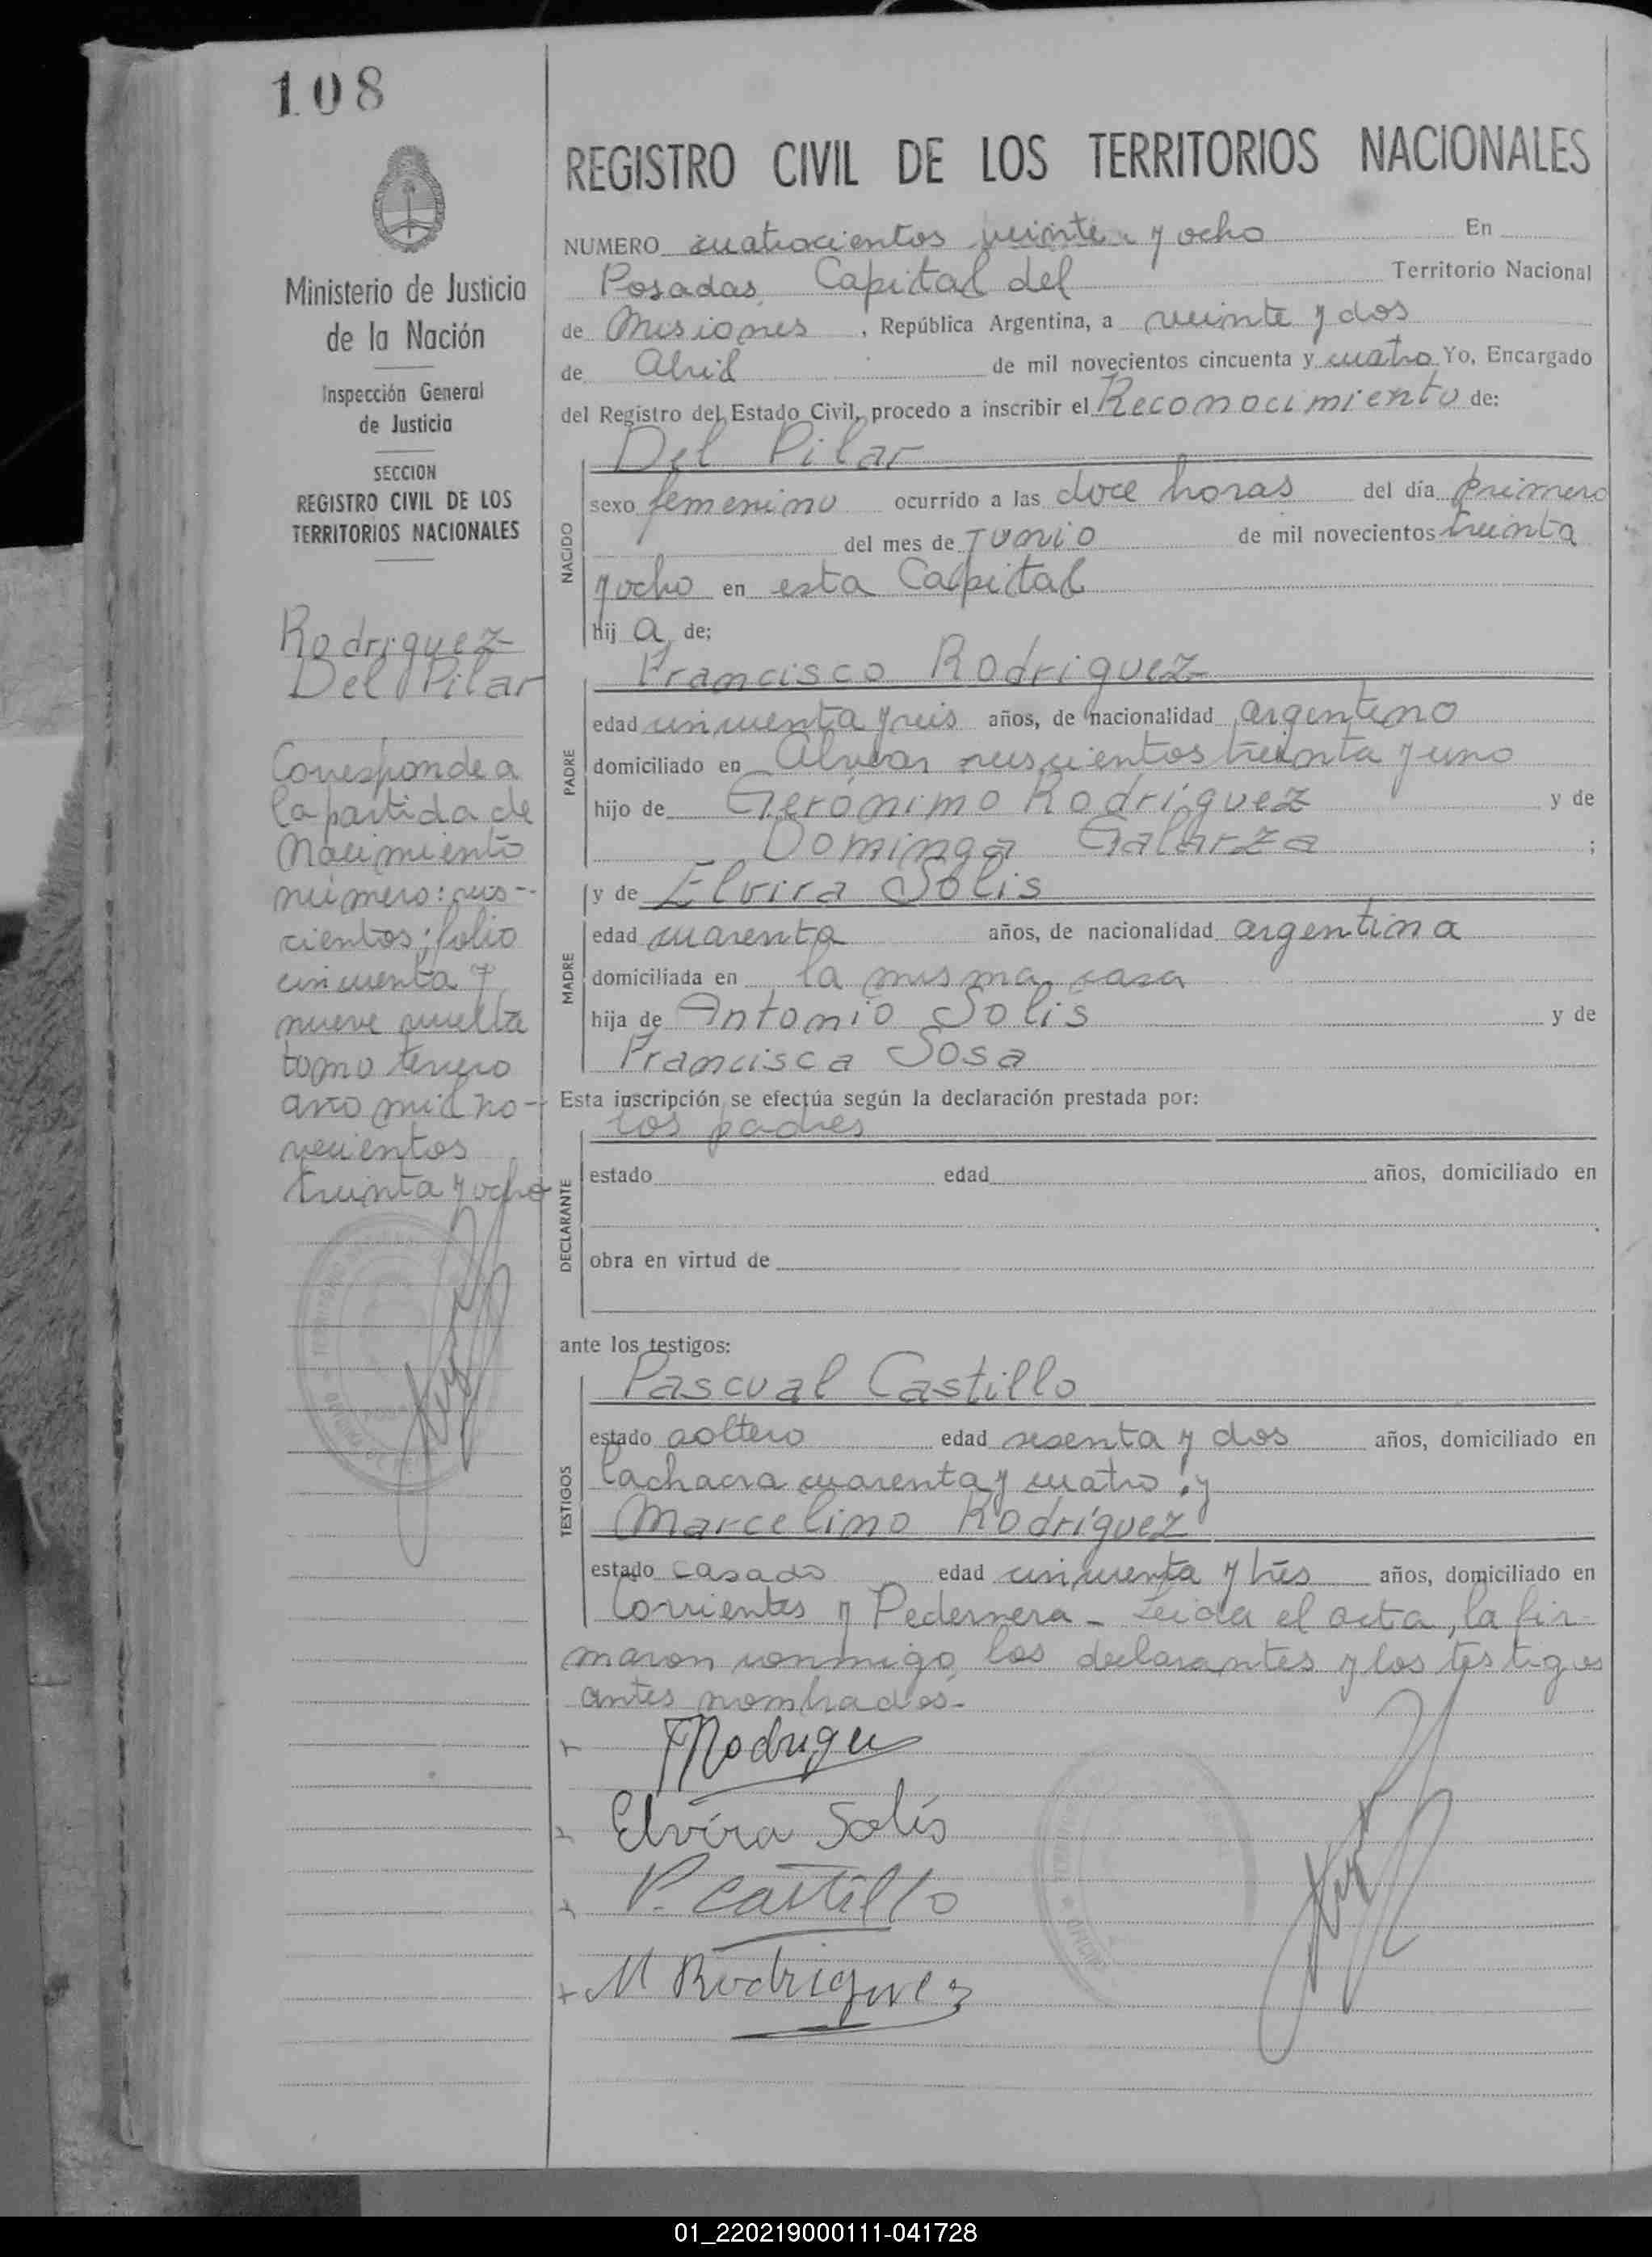 108
Ministerio de Justicia
de la Nación
Inspección General
de Justicia
SECCION
REGISTRO CIVIL DE LOS
TERRITORIOS NACIONALES
Rodriguez
Del Pilar
Corresponde a
la partida de
Nacimiento
número: seis-
cientos; folio
cincuenta y
nueve vuelta
tomo tercero
año mil no-
vecientos
treinta y ocho
REGISTRO CIVIL DE LOS TERRITORIOS NACIONALES
NUMERO cuatrocientos veinte y ocho En
Posadas Capital del Territorio Nacional
de Misiones, República Argentina, a veinte y dos
de Abril de mil novecientos cincuenta y cuatro Yo, Encargado
del Registro del Estado Civil, procedo a inscribir el Reconocimiento de:
Del Pilar
NACIDO
sexo femenino ocurrido a las doce horas del día primero
del mes de Junio de mil novecientos treinta
y ocho en esta Capital
hij a de;
Francisco Rodriguez
PADRE
edad cincuenta y seis años, de nacionalidad argentino
domiciliado en Alvear seiscientos treinta y uno
hijo de Gerónimo Rodríguez y de
Dominga Galarza ;
y de Elvira Solis
MADRE
edad cuarenta años, de nacionalidad argentina
domiciliada en la misma casa
hija de Antonio Solis y de
Francisca Sosa
Esta inscripción se efectúa según la declaración prestada por:
los padres
DECLARANTE
estado edad años, domiciliado en
obra en virtud de
ante los testigos:
Pascual Castillo
TESTIGOS
estado soltero edad sesenta y dos años, domiciliado en
la chacra cuarenta y cuatro; y
Marcelino Rodríguez
estado casado edad cincuenta y tres años, domiciliado en
Corrientes y Pedernera - Leida el acta, la fir-
maron conmigo los declarantes y los testigos
antes nombrados.-
F Rodrigue
Elvira Solís
P. Castillo
M Rodriguez
01_220219000111-041728